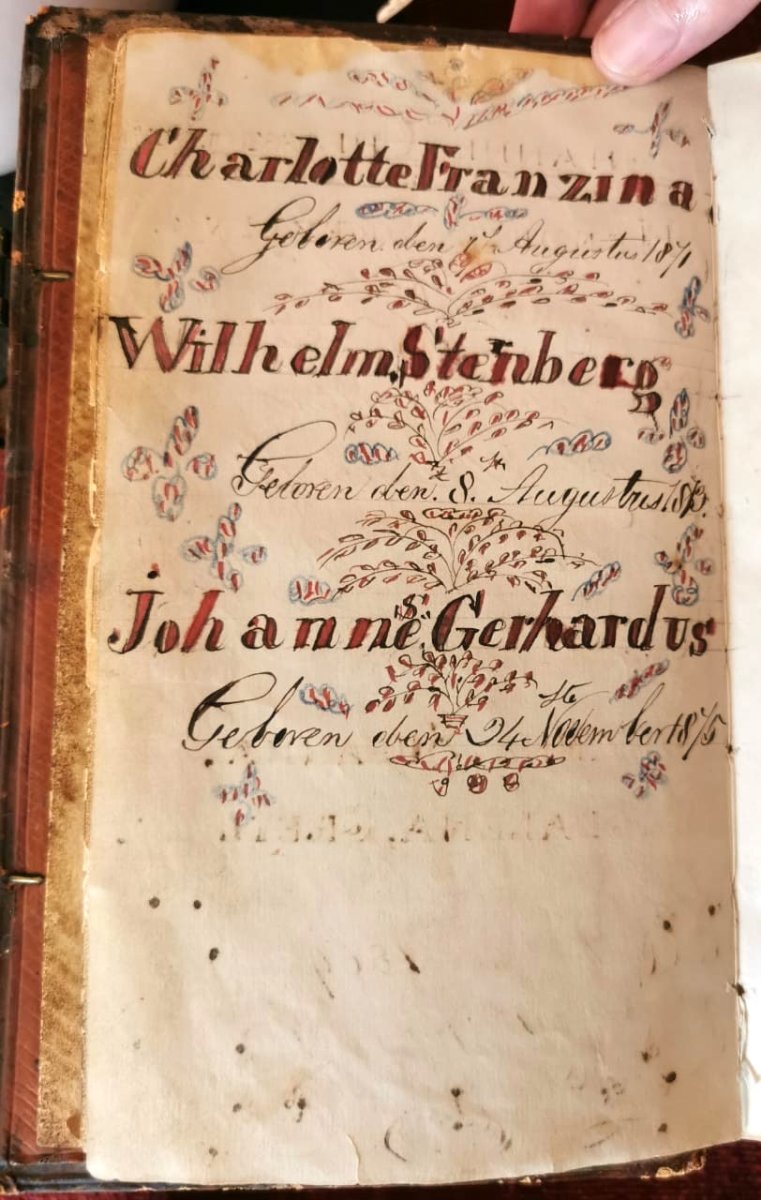 Charlotte Franzina
Geboren den 7 Augustus 1871
Wilhelm Stenberg
Geboren den 8. Augustus 1873.
Johannes Gerhardus
Geboren den 24ste November 1875